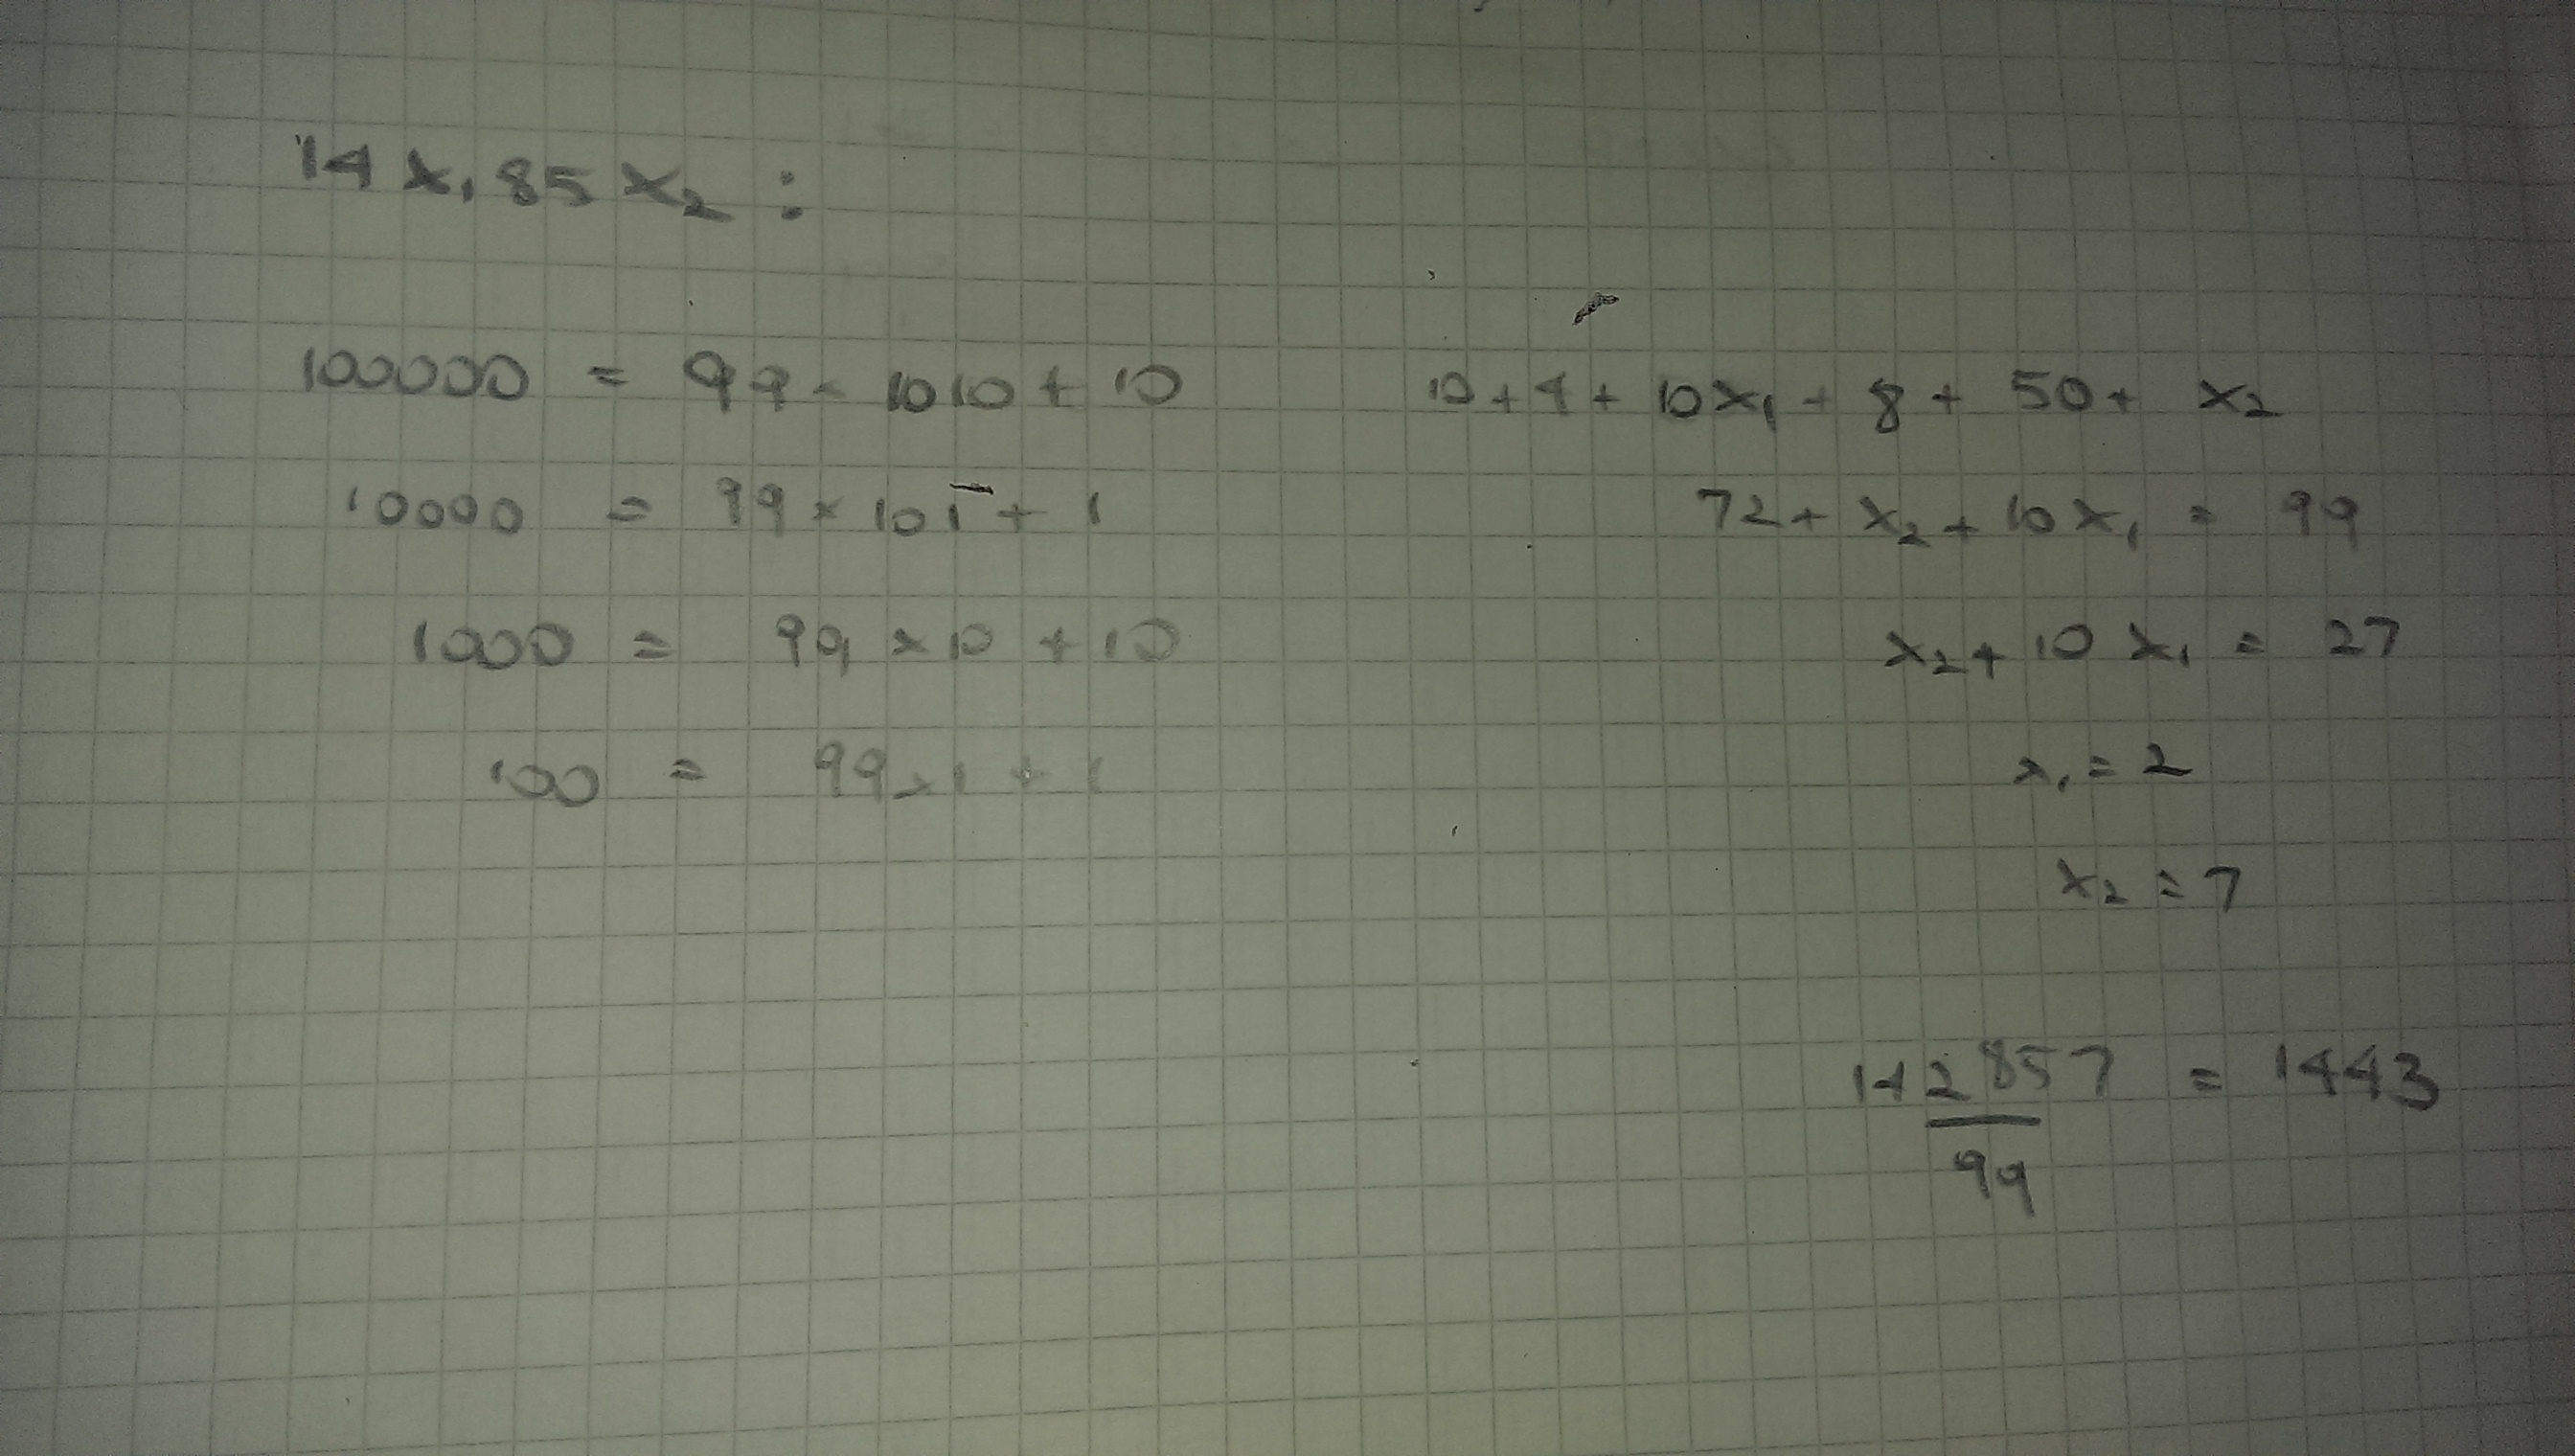 14 x₁ 85 x₂ :
100000 = 99 × 1010 + 10
10000 = 99 × 101 + 1
1000 = 99 × 10 + 10
100 = 99 × 1 + 1
10 + 4 + 10x₁ + 8 + 50 + x₂
72 + x₂ + 10x₁ = 99
x₂ + 10 x₁ = 27
x₁ = 2
x₂ = 7
142857 = 1443
99